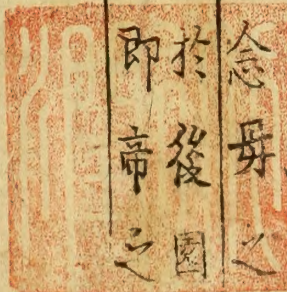 念毋之
於後園
即帝之